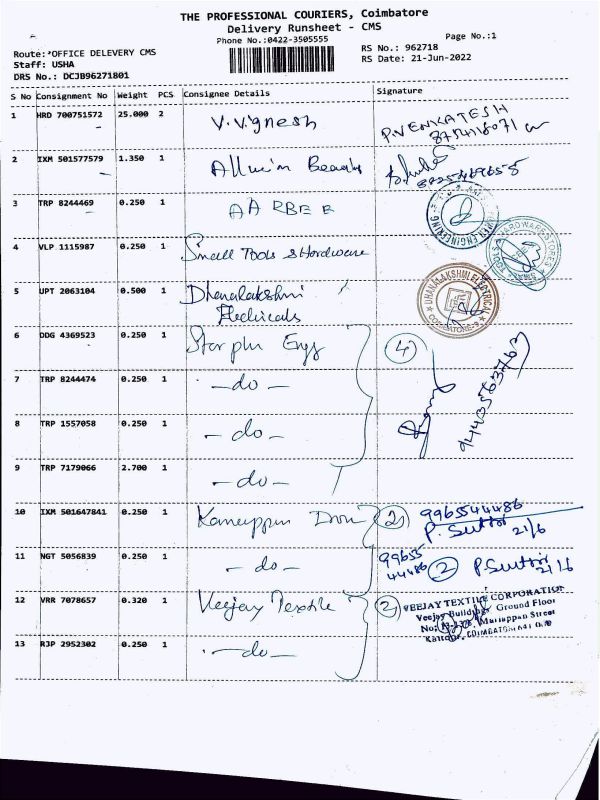 THE PROFESSIONAL COURIERS, Coimbatore
Delivery Runsheet - CMS
Phone No.:0422-3505555
Page No.:1
Route:*OFFICE DELEVERY CMS
RS No.: 962718
Staff: USHA
RS Date: 21-Jun-2022
DRS No.: DCJB96271801
S No Consignment No Weight PCS Consignee Details Signature
1 HRD 700751572 25.000 2 V.Vignesh P.VENKATESH
2 IXM 501577579 1.350 1 Beauty
3 TRP 8244469 0.250 1 AARBEE
4 VLP 1115987 0.250 1 Small Tools & Hardware
5 UPT 2063104 0.500 1 Dhanalakshmi
Electricals
DHANALAKSHMI ELECTRICAL
COIMBATORE
6 DDG 4369523 0.250 1 Star 4
7 TRP 8244474 0.250 1 -do-
9443563763
8 TRP 1557058 0.250 1 -do-
9 TRP 7179066 2.700 1 -do-
10 IXM 501647841 0.250 1 2 9965544486
21/6
11 NGT 5056839 0.250 1 -do- 99655
44486 2 21/6
12 VRR 7078657 0.320 1 Veejay Textile 2 VEEJAY TEXTILE CORPORATION
Veejay Building Ground Floor
Mariappan Street
13 RJP 2952302 0.250 1 -do-